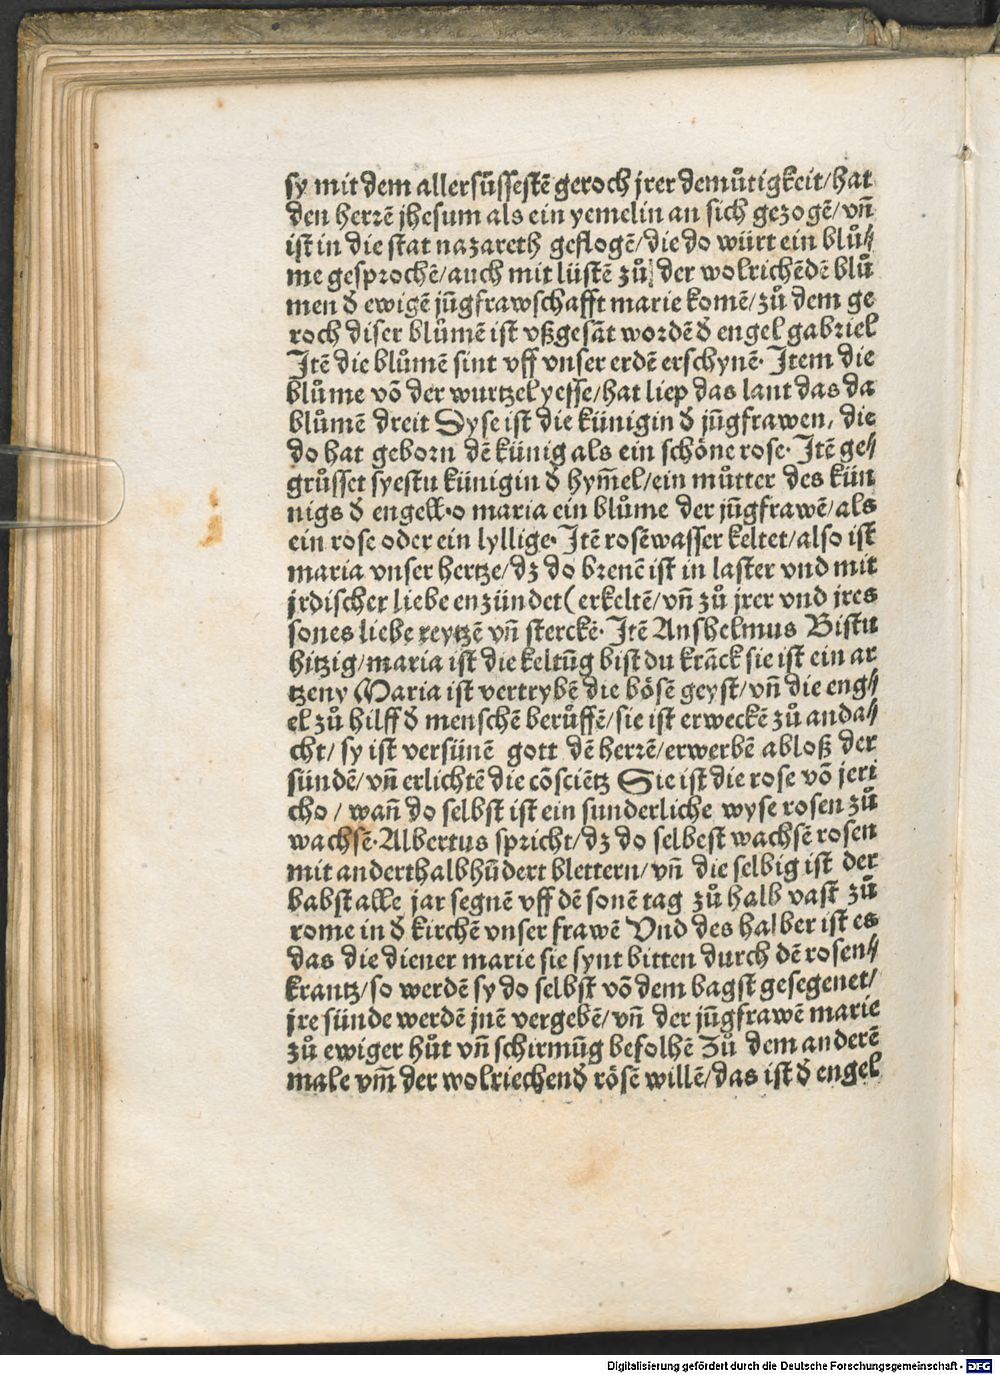 sy mit dem allersüssestē geroch jrer demůtigkeit/hat
den herrē jhesum als ein yemelin an sich gezogē/vn̄
ist in die stat nazareth geflogē/die do würt ein blů⸗
me gesprochē/auch mit lüstē zů der wolrichēdē blů
men d̕ ewigē jūgfrawschafft marie komē/zů dem ge
roch diser blůmē ist vßgesāt wordē d̕ engel gabriel
Jtē die blůmē sint vff vnser erdē erschynē. Jtem die
blůme vō der wurtzel yesse/hat liep das lant das da
blůmē dreit Dyse ist die künigin d̕ jūgfrawen, die
do hat geborn dē künig als ein schöne rose. Jtē ge⸗
grůsset syestu künigin d̕ hym̄el/ein můtter des kün
nigs d̕ engell.o maria ein blůme der jūgfrawē/als
ein rose oder ein lyllige. Jtē rosēwasser keltet/also ist
maria vnser hertze/dz do brenē ist in laster vnd mit
jrdischer liebe enzündet(erkeltē/vn̄ zů jrer vnd jres
sones liebe reytzē vn̄ sterckē. Jtē Anshelmus Bistu
hitzig/maria ist die keltūg bist du krāck sie ist ein ar
tzeny Maria ist vertrybē die bösē geyst/vn̄ die eng⸗
el zů hilff d̕ menschē berůffē/sie ist erweckē zů anda⸗
cht/ sy ist versünē gott dē herrē/erwerbē abloß der
sündē/vn̄ erlichtē die cōsciētz Sie ist die rose vō jeri
cho / wan̄ do selbst ist ein sunderliche wyse rosen zů
wachsē.Albertus spricht/dz do selbest wachsē rosen
mit anderthalbhūdert blettern/vn̄ die selbig ist der
babst alle jar segnē vff dē sonē tag zů halb vast zů
rome in d̕ kirchē vnser frawē Vnd des halber ist es
das die diener marie sie synt bitten durch dē rosen⸗
krantz/so werdē sy do selbst vō dem bagst gesegenet/
jre sünde werdē jnē vergebē/vn̄ der jūgfrawē marie
zů ewiger hůt vn̄ schirmūg befolhē Zů dem anderē
male vm̄ der wolriechend̕ rösē willē/das ist d̕ engel
Digitalisierung gefördert durch die Deutsche Forschungsgemeinschaft - DFG